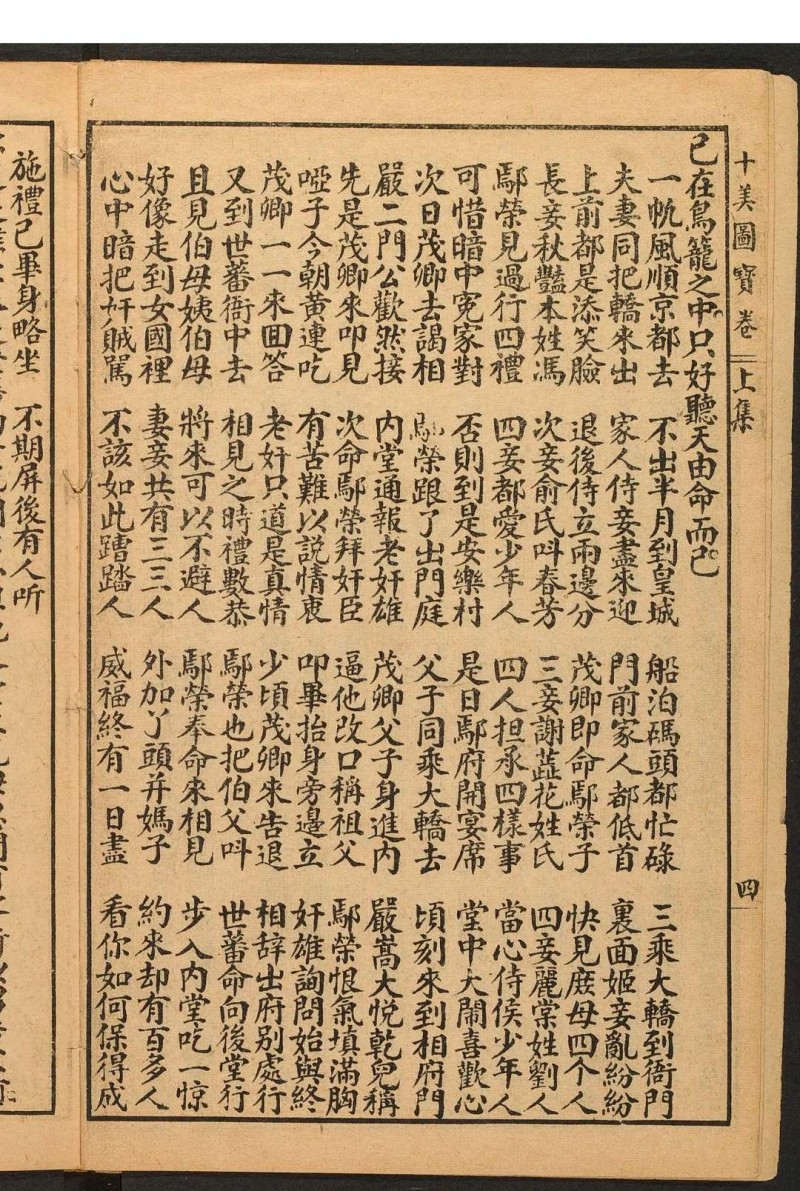 十美圖寶卷 上集 四
已在鳥籠之中只好聽天由命而已
一帆風順京都去 不出半月到皇城 船泊碼頭都忙碌 三乘大轎到衙門
夫妻同把轎來出 家人侍妾盡來迎 門前家人都低首 裏面姬妾亂紛紛
上前都是添笑臉 退後侍立兩邊分 茂卿即命鄢榮子 快見庶母四个人
長妾秋豔本姓馮 次妾俞氏呌春芳 三妾謝蕋花姓氏 四妾麗棠姓劉人
鄢榮見過行四禮 四妾都愛少年人 四人担承四樣事 當心侍侯少年人
可惜暗中冤家對 否則到是安樂村 是日鄢府開宴席 堂中大鬧喜歡心
次日茂卿去謁相 鄢榮跟了出門庭 父子同乘大轎去 頃刻來到相府門
嚴二門公歡然接 内堂通報老奸雄 茂卿父子身進内 嚴嵩大悅乾兒稱
先是茂卿來叩見 次命鄢榮拜奸臣 逼他改口稱祖父 鄢榮恨氣填滿胸
啞子今朝黄連吃 有苦難以説情衷 叩畢抬身旁邊立 奸雄詢問始與終
茂卿一一來囬答 老奸只道是真情 少頃茂卿來告退 相辞出府别處行
又到世蕃衙中去 相見之時禮數恭 鄢榮也把伯父呌 世蕃命向後堂行
且見伯母姨伯母 將來可以不避人 鄢榮奉命來相見 步入内堂吃一惊
好像走到女國裡 妻妾共有三三人 外加丫頭并媽子 約來却有百多人
心中暗把奸賊駡 不該如此蹧踏人 威福終有一日盡 看你如何保得成
施禮已畢身略坐 不期屏後有人听